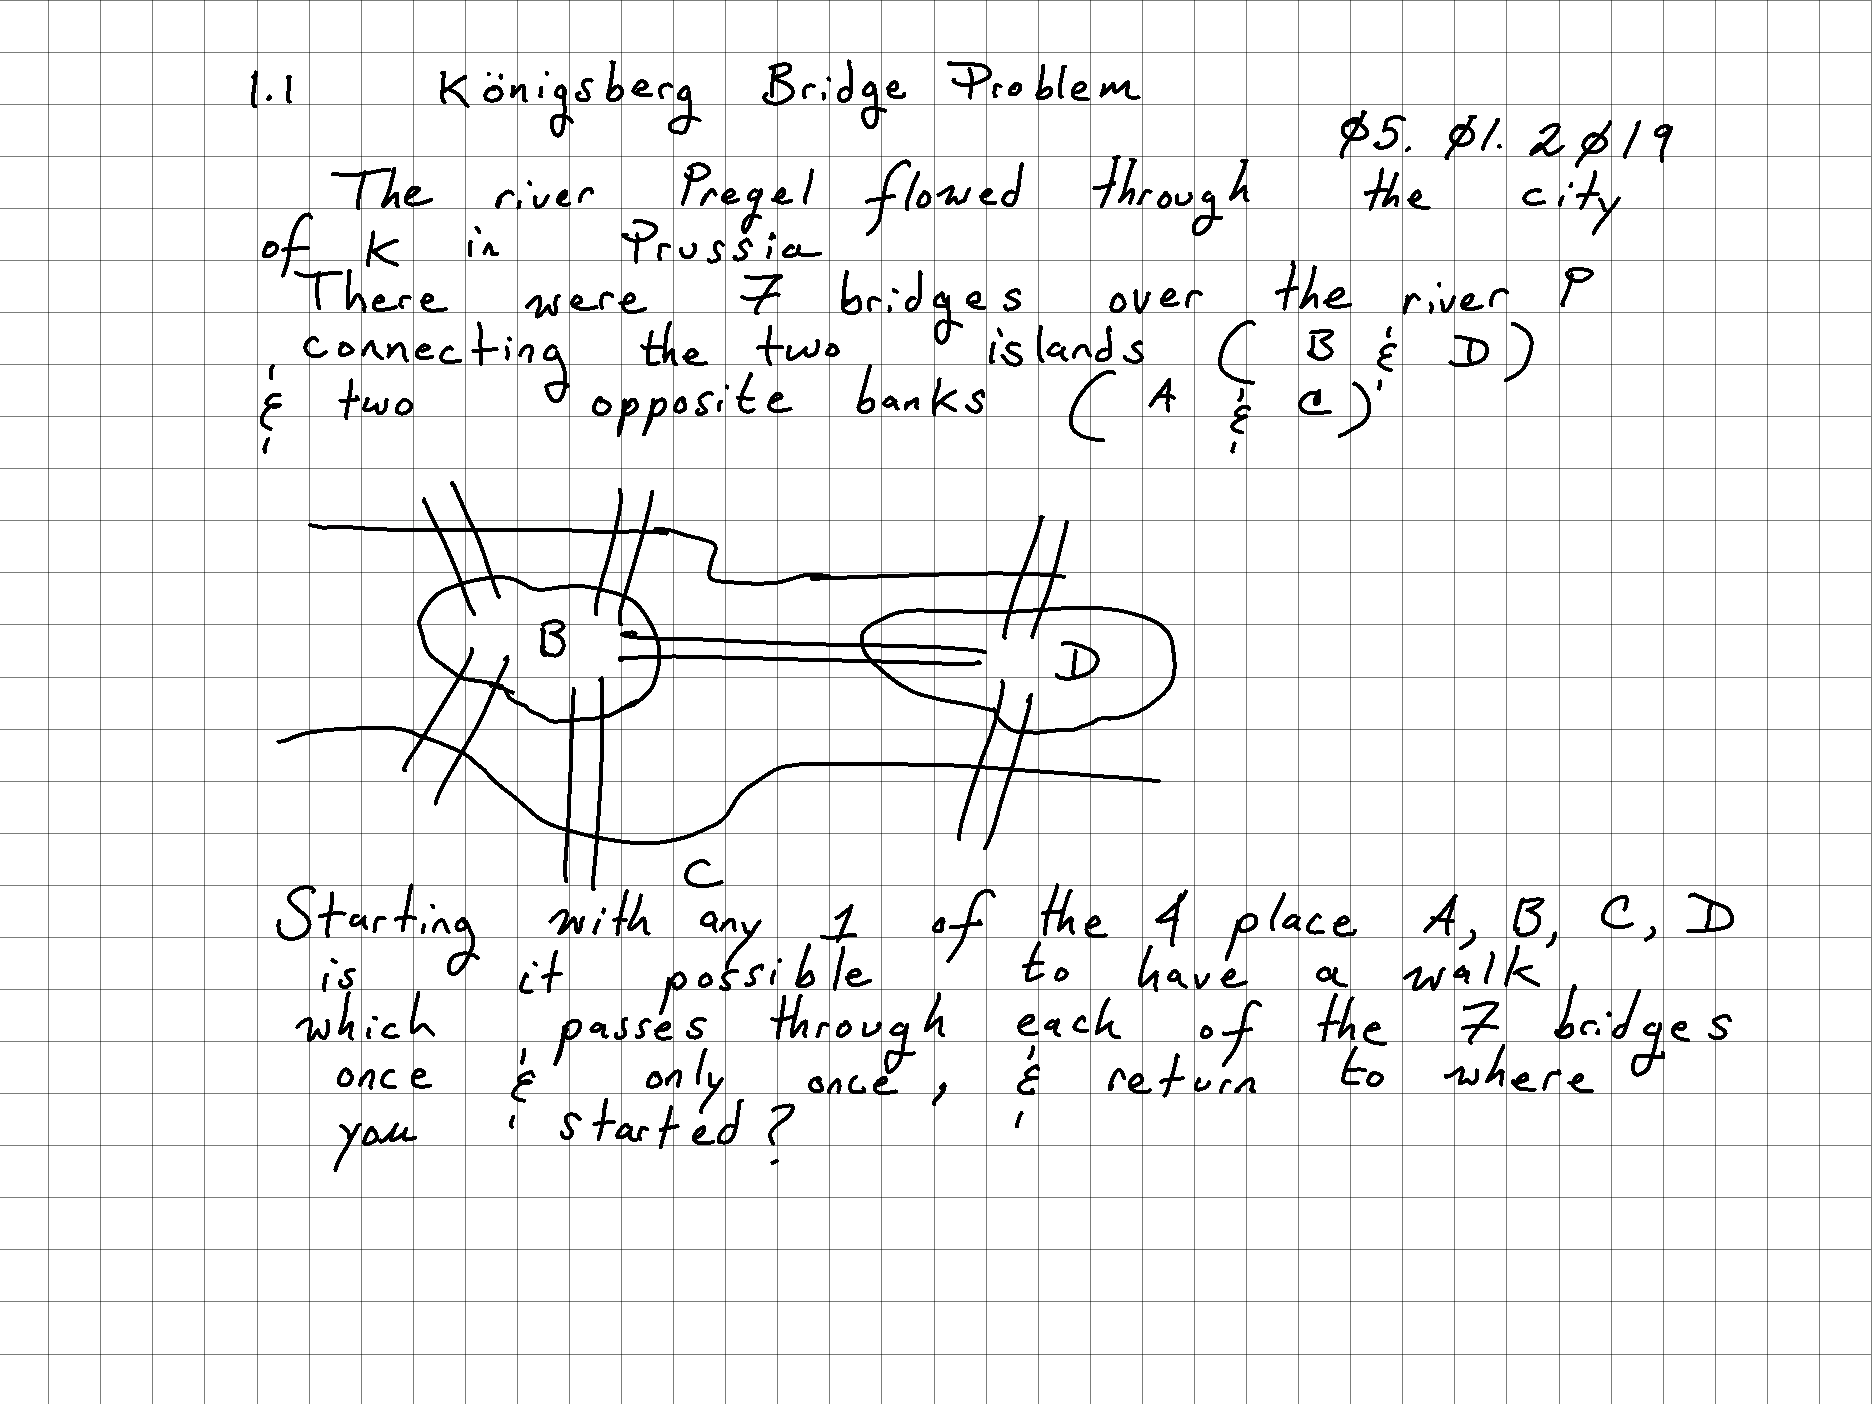 1.1 Königsberg Bridge Problem
Ø5. Ø1. 2Ø19
The river Pregel flowed through the city
of K in Prussia
There were 7 bridges over the river P
connecting the two islands ( B & D )
& two opposite banks ( A & C )
B
D
C
Starting with any 1 of the 4 place A, B, C, D
is it possible to have a walk
which passes through each of the 7 bridges
once & only once, & return to where
you started?